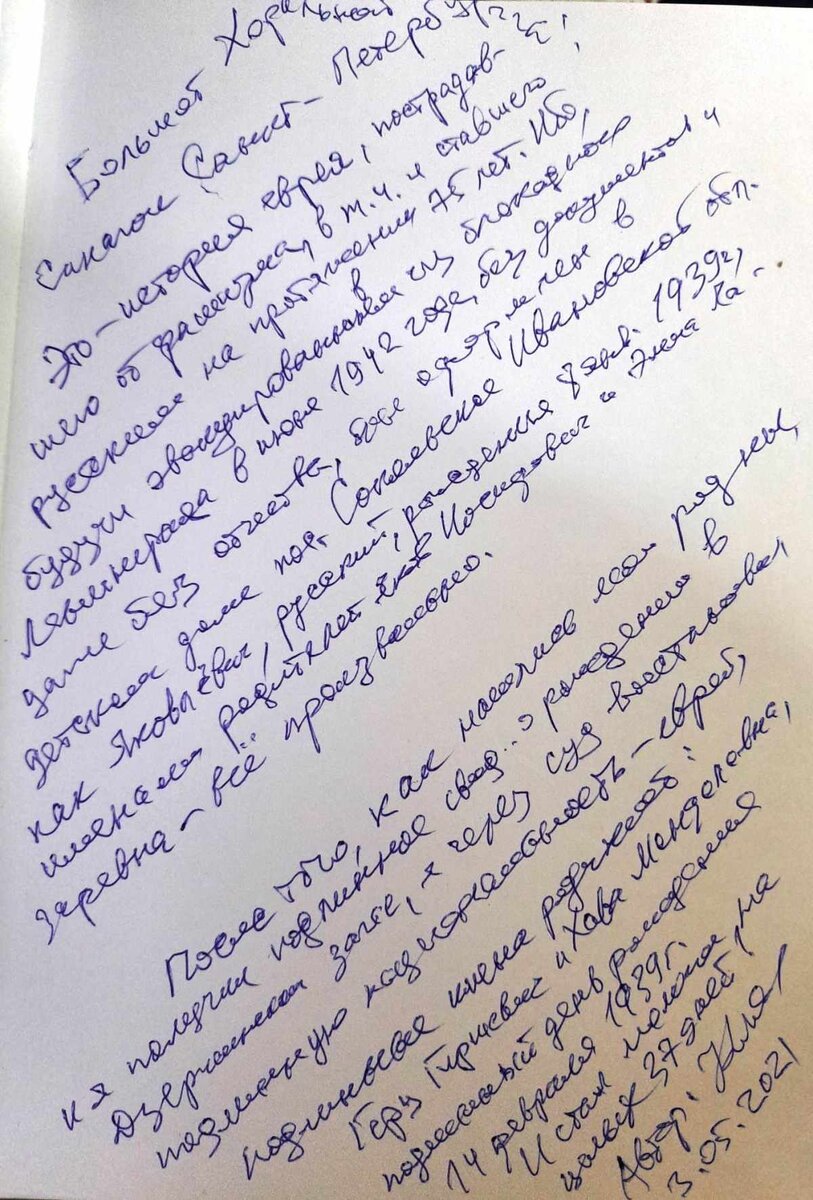 Большой Хоральной
Синагоге Санкт-Петербурга!
Это - история еврея, пострадав-
шего от фашизма, в т.ч. и ставшего
русским на протяжении 75 лет. Ибо,
будучи эвакуированным из блокадного
Ленинграда в июле 1942 года, без документов и
даже без отчества, был оформлен в
детском доме пос. Сокольское Ивановской обл.
как Яковлевич, русский, рождения 8 янв. 1939г,
именами родителей Яков Иосифович и Эмма Ла-
заревна - всё произвольно.
После того, как нашлись мои родные,
и я получил подлинное свид..о рождении в
Дзержинском загсе, я через суд восстановил
подлинную национальность - еврей,
подлинные имена родителей:
Герц Гиршевич и Хава Менделевна,
подлинный день рождения
14 февраля 1939г.
И стал моложе на
целых 37 дней!
Автор:
3.05.2021